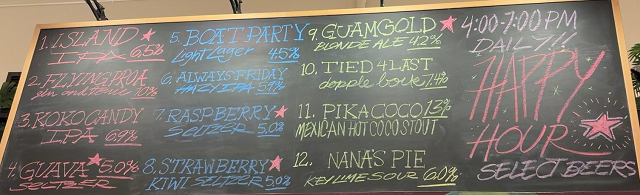 1. ISLAND
IPA 6.5%
2. FLYING PROA
gin and tonic 7.0%
3. KOKO CANDY
IPA 6.9%
4. GUAVA 5.0%
SELTZER
5. BOAT PARTY
Light Lager 4.5%
6. ALWAYS FRIDAY
HAZY IPA
7. RASPBERRY
SELTZER 5.0%
8. STRAWBERRY
KIWI SELTZER 5.0%
9. GUAM GOLD
BLONDE ALE 4.2%
10. TIED 4 LAST
dopple bock 7.4%
11. PIKA COCO 13%
MEXICAN HOT COCO STOUT
12. NANA'S PIE
KEY LIME SOUR 6.0%
4:00-7:00 PM
DAILY!!!
HAPPY
HOUR
SELECT BEERS